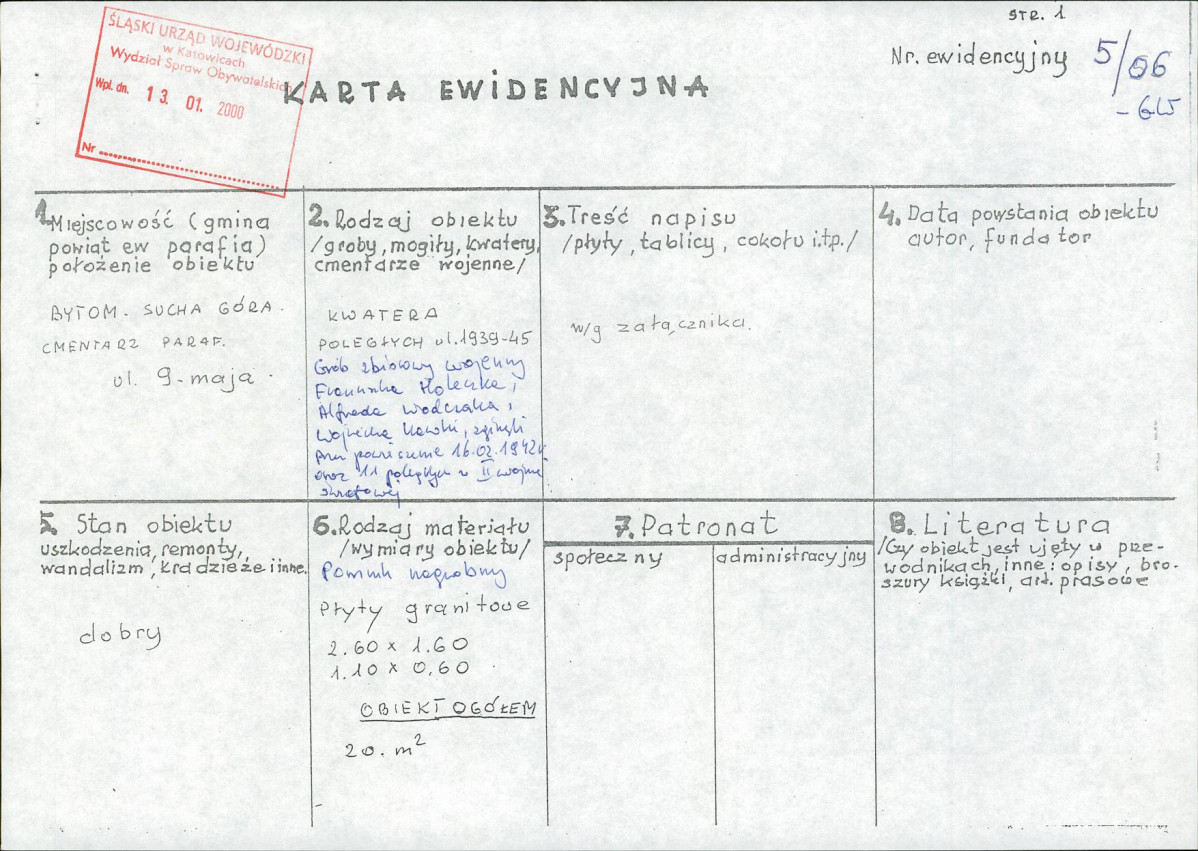 str. 1
Nr. ewidencyjny 5/06
- GW
ŚLĄSKI URZĄD WOJEWÓDZKI
w Katowicach
Wydział Spraw Obywatelskich
Wpł. dn. 13. 01. 2000
Nr
KARTA EWIDENCYJNA
1. Miejscowość (gmina
powiat ew parafia)
położenie obiektu
BYTOM. SUCHA GÓRA.
CMENTARZ PARAF.
ul. 9-maja.
2. Rodzaj obiektu
/groby, mogiły, kwatery,
cmentarze wojenne/
KWATERA
POLEGŁYCH ul. 1939-45
Grób zbiorowy wojenny
Franciszka Holeczka,
Alfreda Wodczaka,
Wojciecha Kawki, zginęli
przez powieszenie 16.02.1942r.
oraz 11 poległych w II wojnie
światowej
3. Treść napisu
/płyty, tablicy, cokołu i.t.p./
w/g załącznika.
4. Data powstania obiektu
autor, fundator
5. Stan obiektu
uszkodzenia, remonty,
wandalizm, kradzieże i inne.
dobry
6. Rodzaj materiału
/wymiary obiektu/
Pomnik nagrobny
Płyty granitowe
2.60 x 1.60
1.10 x 0,60
OBIEKT OGÓŁEM
20. m²
7. Patronat
społeczny
administracyjny
8. Literatura
/Czy obiekt jest ujęty w prze-
wodnikach, inne: opisy, bro-
szury książki, art. prasowe